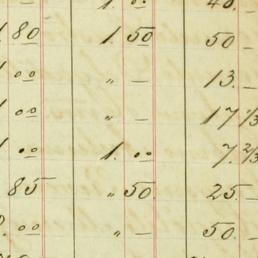 1. 00 40. —
1 80 1. 50 50 —
1 00 „ — 13. —
1 00 „ — 17 1/3
1 00 1. 00 7. 2/3
85 „ 50. 25 —
00 „ — 50. —